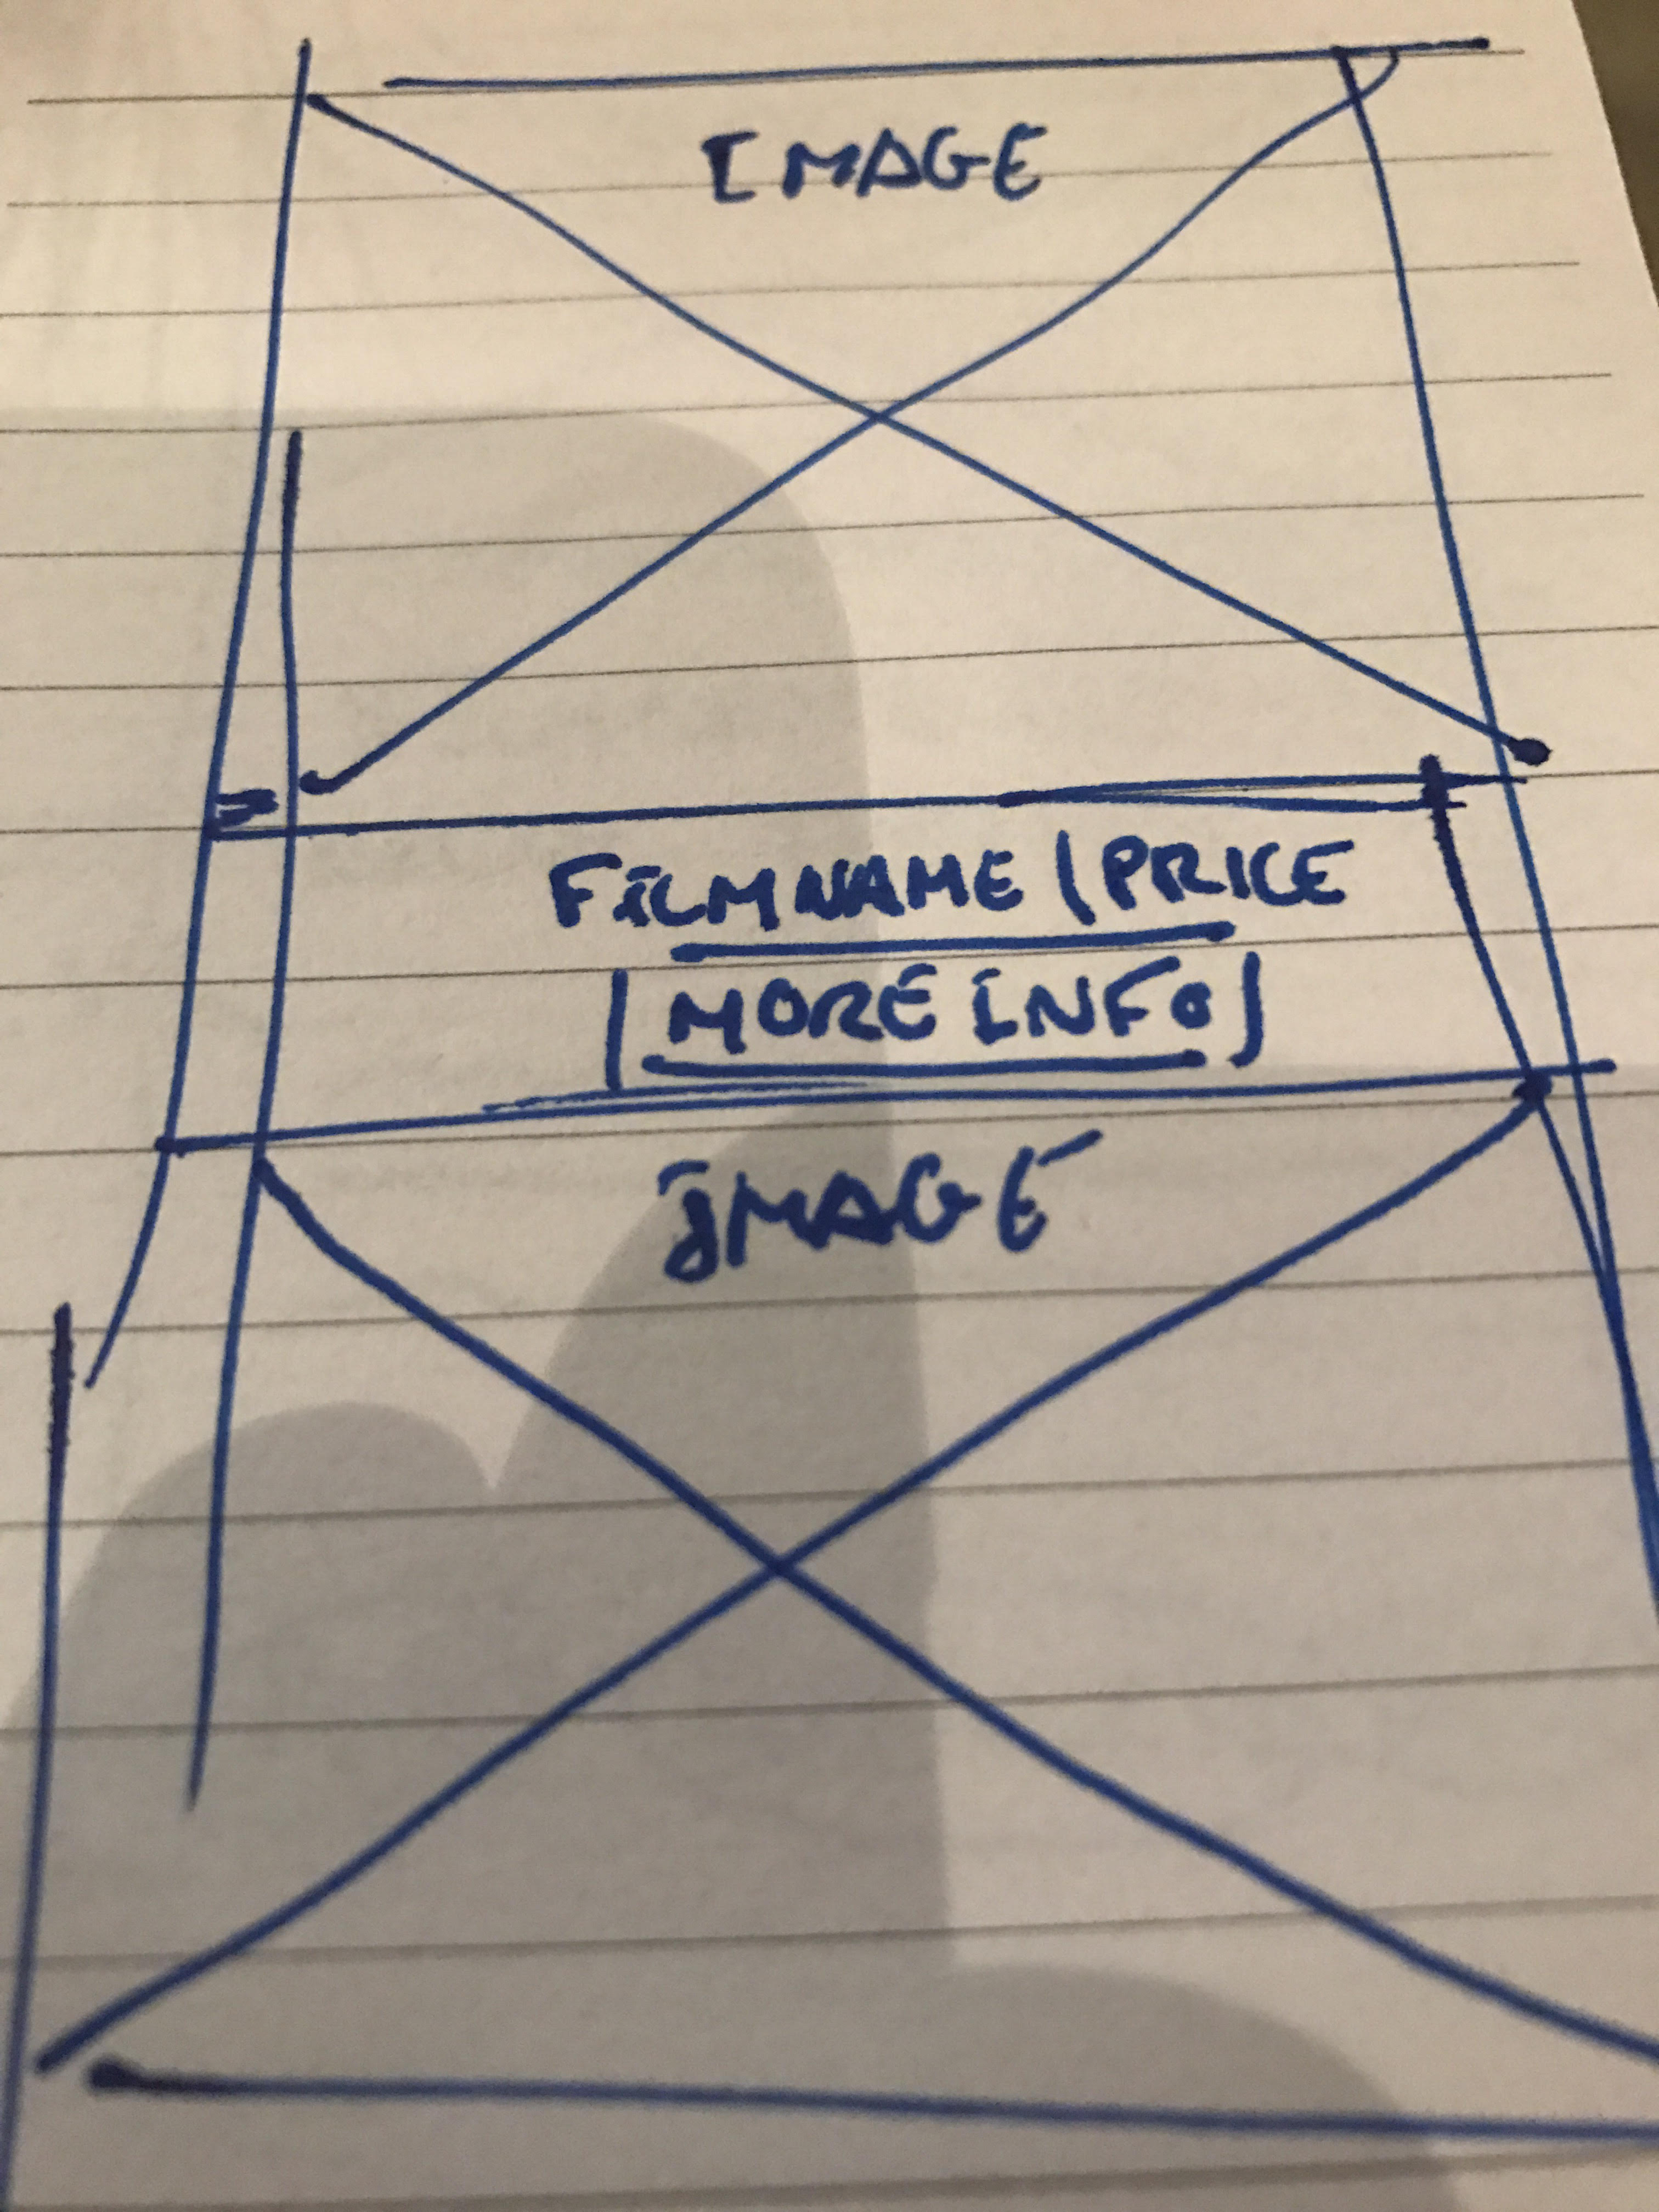 IMAGE
FILMNAME | PRICE
| MORE INFO |
IMAGE